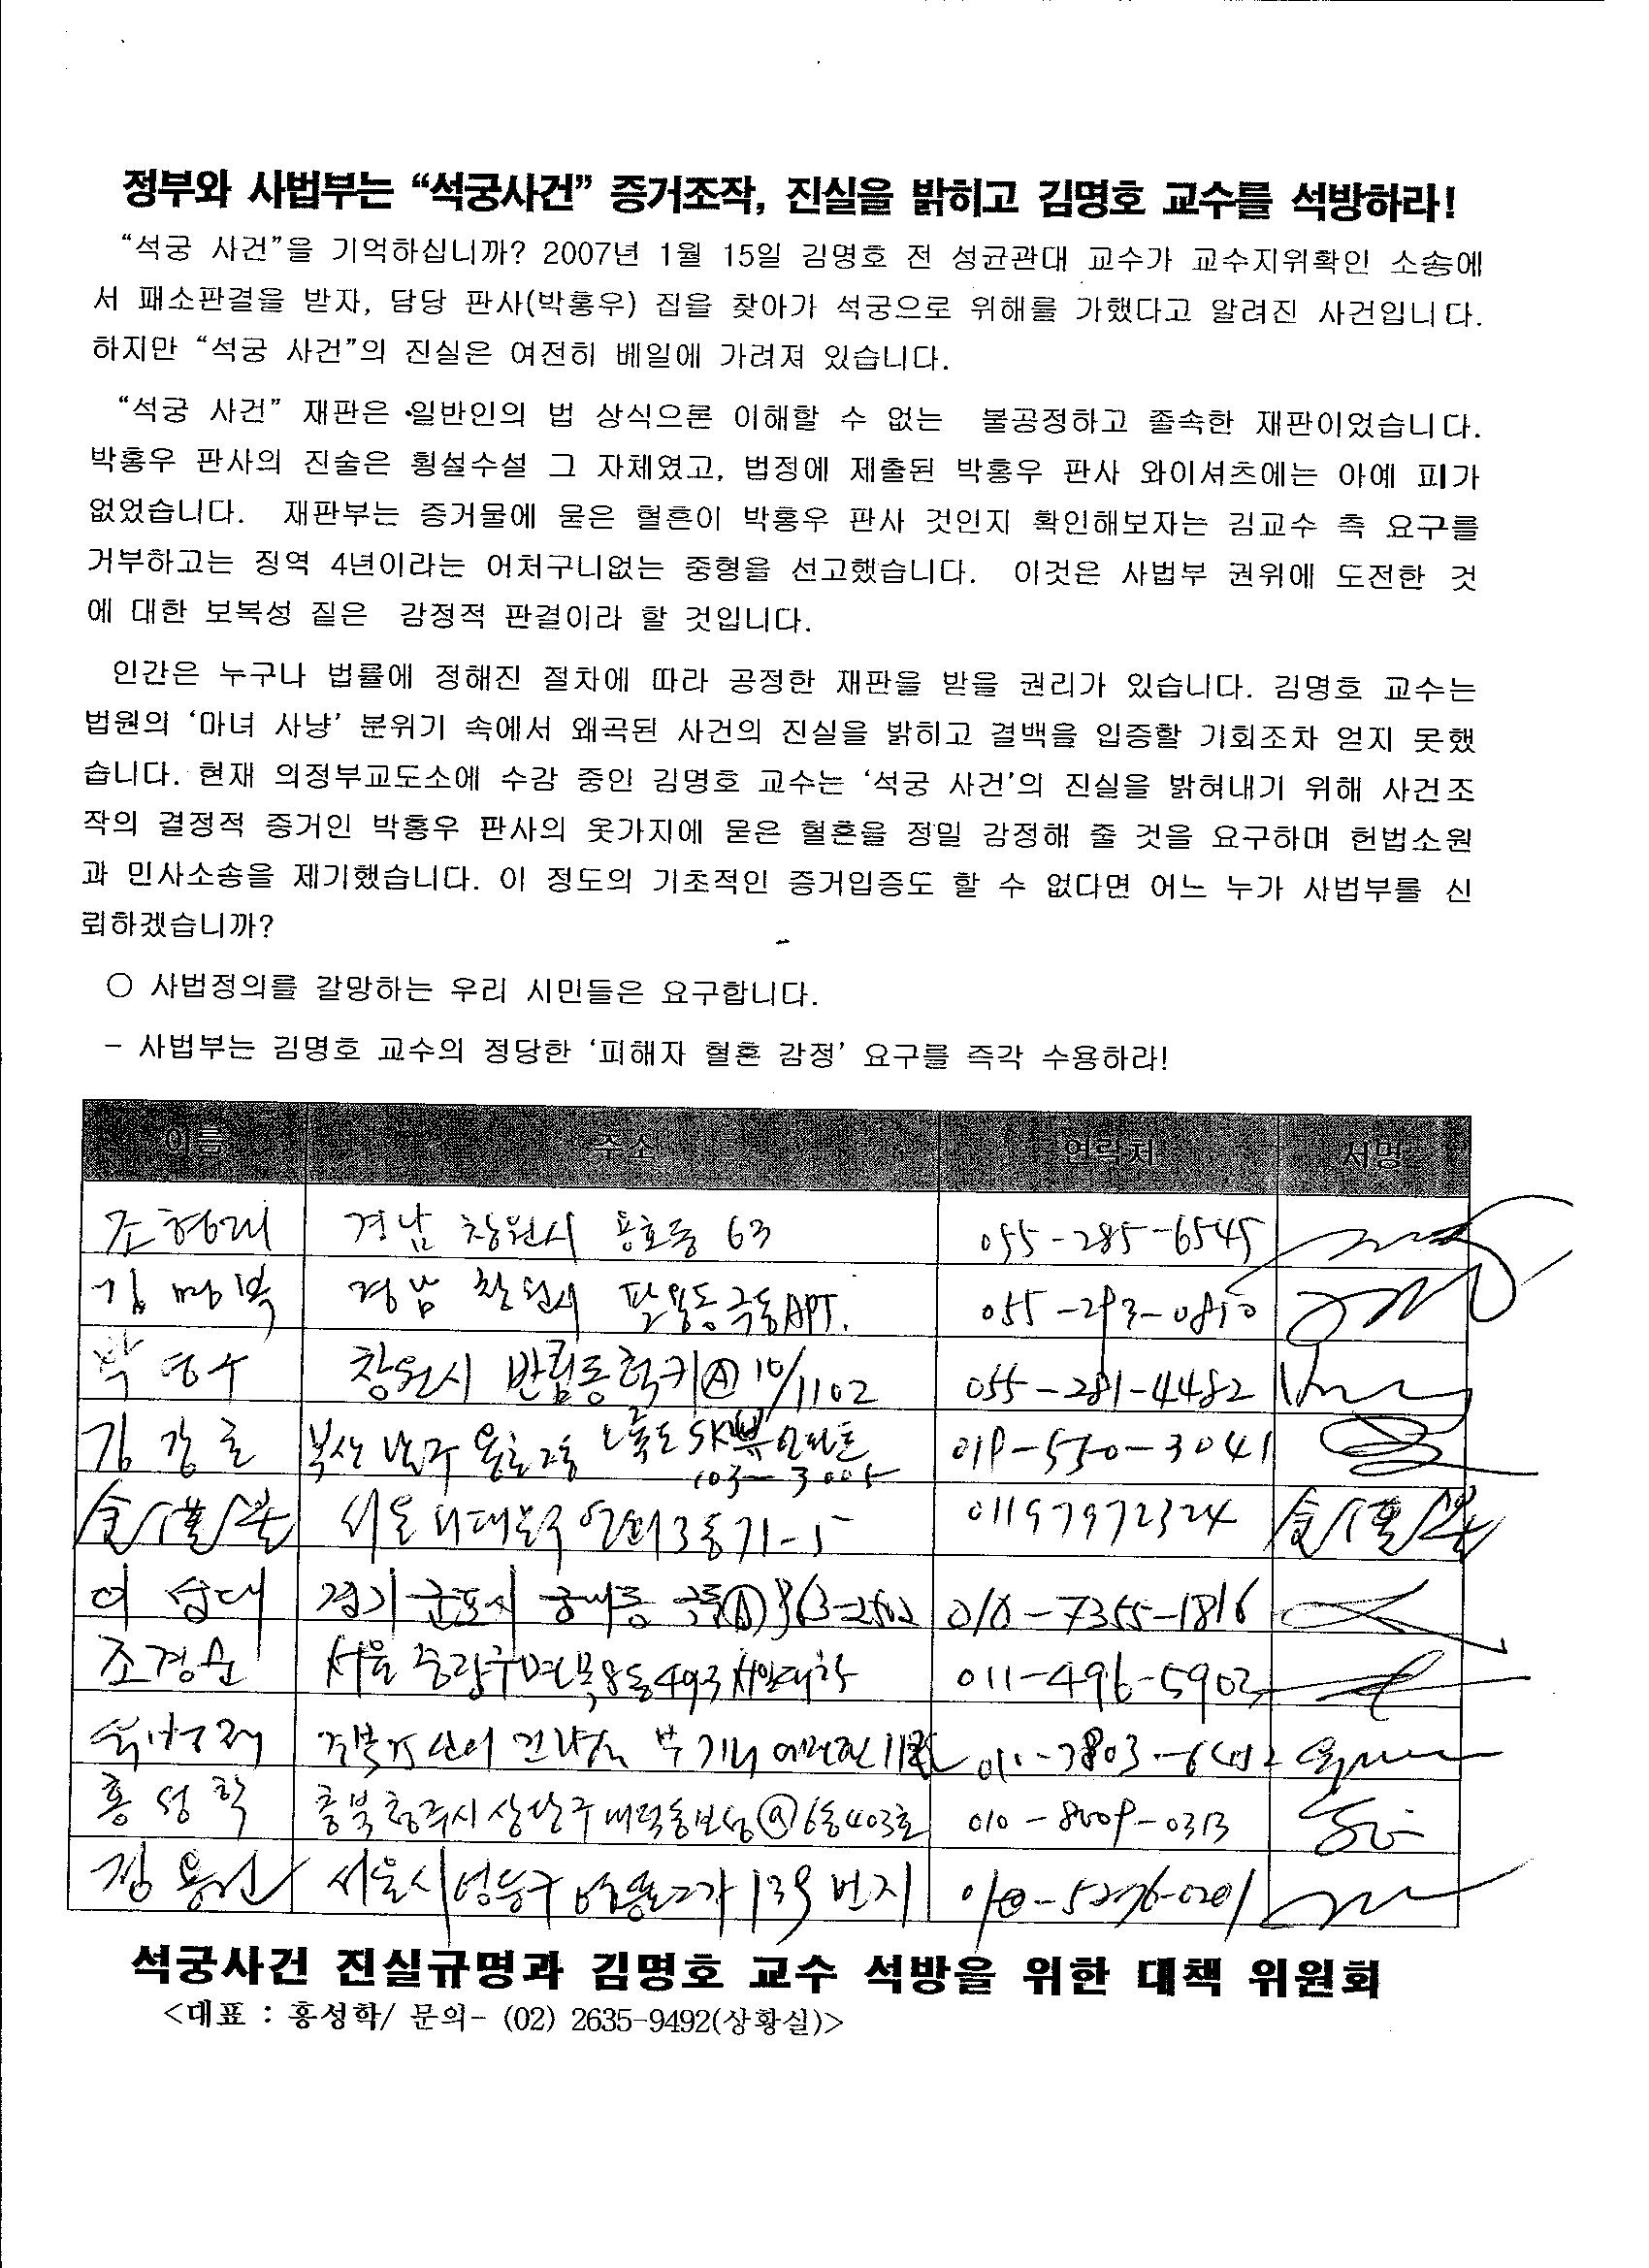 정부와 사법부는 “석궁사건” 증거조작, 진실을 밝히고 김명호 교수를 석방하라!
“석궁 사건”을 기억하십니까? 2007년 1월 15일 김명호 전 성균관대 교수가 교수지위확인 소송에
서 패소판결을 받자, 담당 판사(박홍우) 집을 찾아가 석궁으로 위해를 가했다고 알려진 사건입니다.
하지만 “석궁 사건”의 진실은 여전히 베일에 가려져 있습니다.
“석궁 사건” 재판은 일반인의 법 상식으론 이해할 수 없는 불공정하고 졸속한 재판이었습니다.
박홍우 판사의 진술은 횡설수설 그 자체였고, 법정에 제출된 박홍우 판사 와이셔츠에는 아예 피가
없었습니다. 재판부는 증거물에 묻은 혈흔이 박홍우 판사 것인지 확인해보자는 김교수 측 요구를
거부하고는 징역 4년이라는 어처구니없는 중형을 선고했습니다. 이것은 사법부 권위에 도전한 것
에 대한 보복성 짙은 감정적 판결이라 할 것입니다.
인간은 누구나 법률에 정해진 절차에 따라 공정한 재판을 받을 권리가 있습니다. 김명호 교수는
법원의 ‘마녀 사냥’ 분위기 속에서 왜곡된 사건의 진실을 밝히고 결백을 입증할 기회조차 얻지 못했
습니다. 현재 의정부교도소에 수감 중인 김명호 교수는 ‘석궁 사건’의 진실을 밝혀내기 위해 사건조
작의 결정적 증거인 박홍우 판사의 옷가지에 묻은 혈흔을 정밀 감정해 줄 것을 요구하며 헌법소원
과 민사소송을 제기했습니다. 이 정도의 기초적인 증거입증도 할 수 없다면 어느 누가 사법부를 신
뢰하겠습니까?
○ 사법정의를 갈망하는 우리 시민들은 요구합니다.
- 사법부는 김명호 교수의 정당한 ‘피해자 혈흔 감정’ 요구를 즉각 수용하라!
이름 주소 연락처 서명
조형래 경남 창원시 용호동 63 055-285-6545
김명복 경남 창원시 팔용동 극동APT. 055-293-0850
박영수 창원시 반림동 럭키Ⓐ 10/1102 055-281-4482
김강로 부산 남구 용호2동 SK 아파트 103-3005 019-550-3041
서울 서대문구 연희3동 71-5 01197972324
경기 군포시 궁내동 Ⓐ 010-7355-1816
조경순 서울 중랑구 면목8동 서일대학 011-496-5903
경북 경산시 진량읍
홍성학 충북 청주시 상당구 용암동 보성ⓐ 6동 403호 010-8009-0313
김용신 서울시 성동구 2가 139번지
석궁사건 진실규명과 김명호 교수 석방을 위한 대책 위원회
<대표 : 홍성학/ 문의- (02) 2635-9492(상황실)>